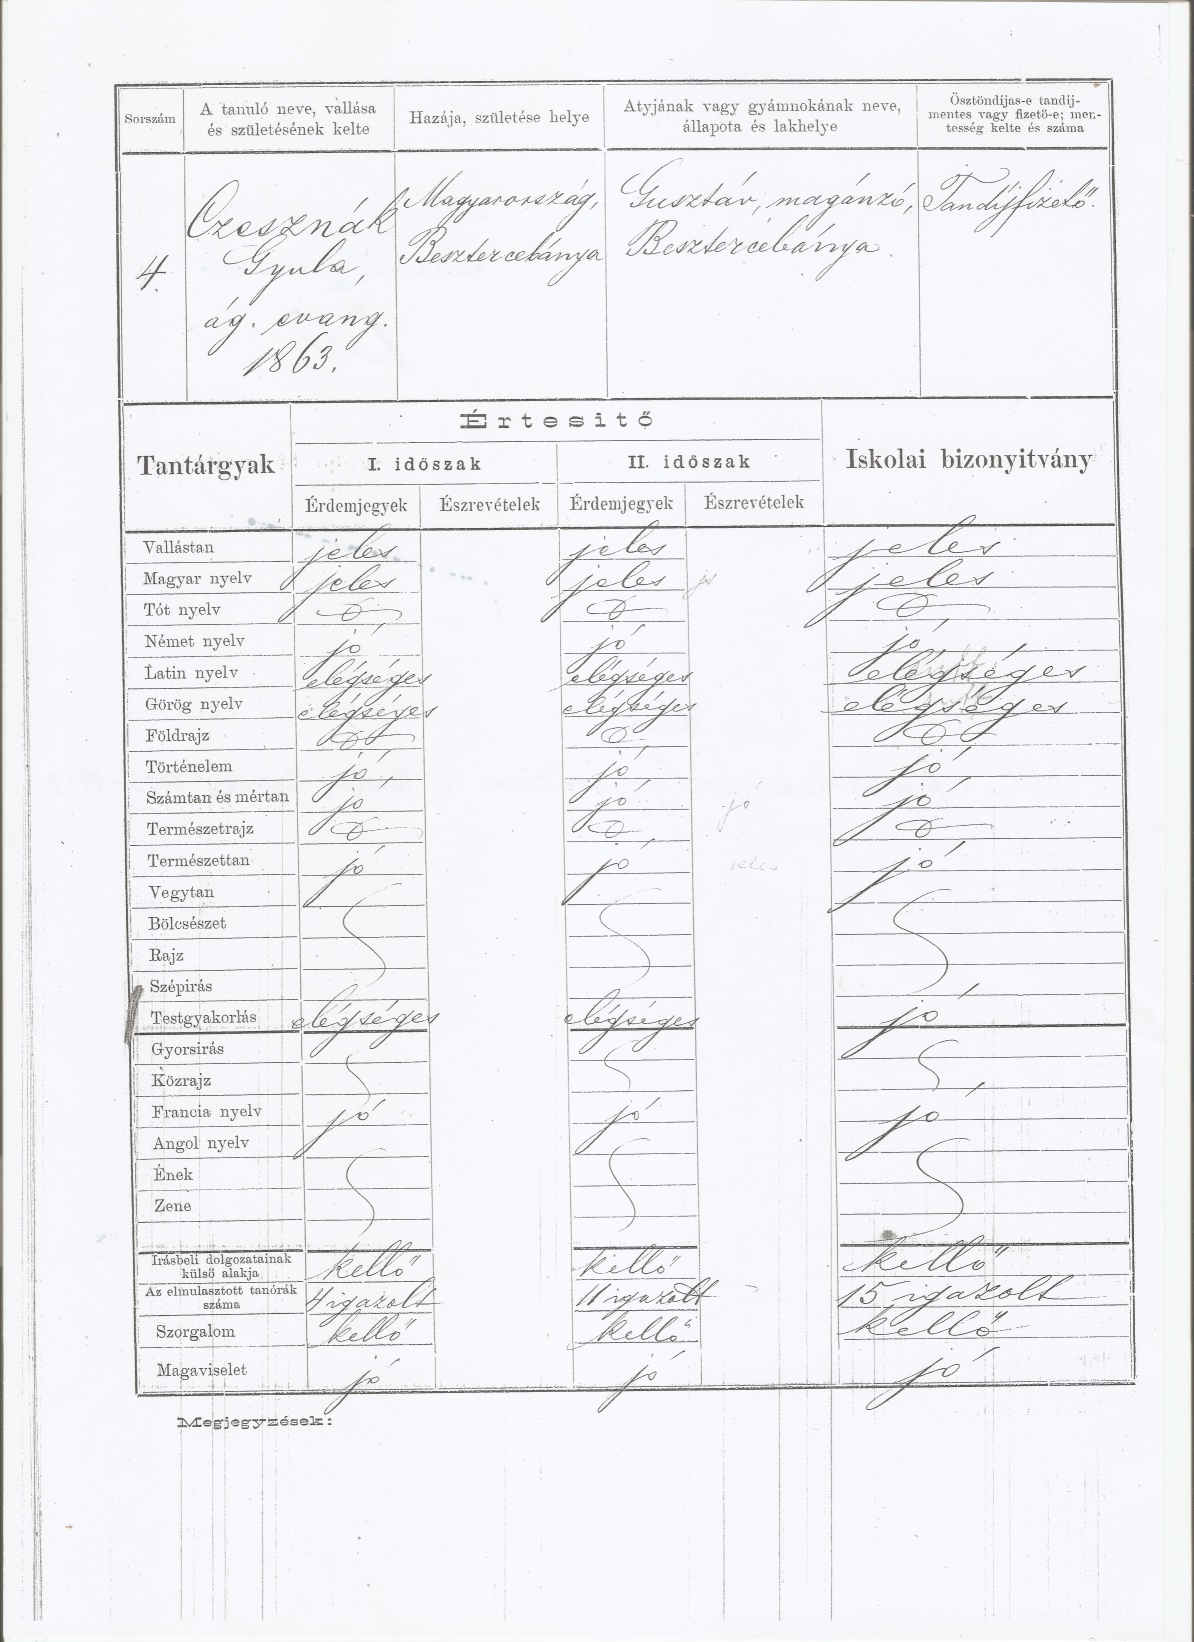 Sorszám
A tanuló neve, vallása
és születésének kelte
Hazája, születése helye
Atyjának vagy gyámnokának neve,
állapota és lakhelye
Ösztöndíjas-e tandíj-
mentes vagy fizető-e; men-
tesség kelte és száma
4.
Czesznák
Gyula,
ág. evang.
1863.
Magyarország,
Besztercebánya
Gusztáv, magánzó,
Besztercebánya.
Tandíjfizető.
Tantárgyak
Értesitő
Iskolai bizonyitvány
I. időszak
II. időszak
Érdemjegyek Észrevételek Érdemjegyek Észrevételek
Vallástan jeles jeles jeles
Magyar nyelv jeles jeles js jeles
Tót nyelv
Német nyelv jó jó jó
Latin nyelv elégséges elégséges elégséges
Görög nyelv elégséges elégséges elégséges
Földrajz
Történelem jó jó jó
Számtan és mértan jó jó jo jó
Természetrajz
Természettan jó jó jeles jó
Vegytan
Bölcsészet
Rajz
Szépirás
Testgyakorlás elégséges elégséges jó
Gyorsirás
Közrajz
Francia nyelv jó jó jó
Angol nyelv
Ének
Zene
Irásbeli dolgozatainak
külső alakja kellő kellő kellő
Az elmulasztott tanórák
száma 4 igazolt 11 igazolt 15 igazolt
Szorgalom kellő kellő kellő
Magaviselet jó jó jó
Megjegyzések: